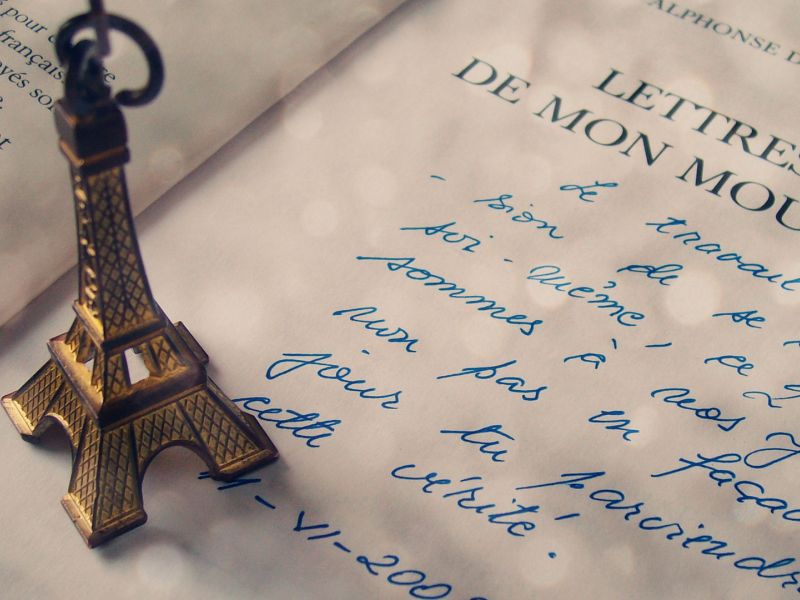 pour
française
yés so
ALPHONSE D
LETTRES
DE MON MOU
Le travail
- sion de se
soi-même, ce
sommes à nos y
non pas en faça
jour tu parviendr
cette vérité.
-VI-200